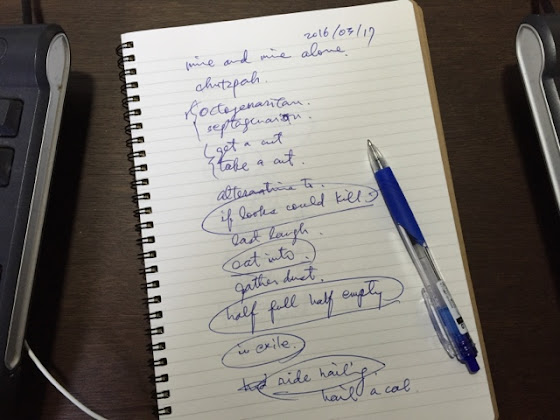 2016/03/17
mine and mine alone.
chutzpah.
octogenarian.
septaguarian.
get a cut
take a cut.
alternative to.
if looks could kill.
last laugh.
eat into.
gather dust.
half full half empty
in exile.
ride hailing.
hail a cab.